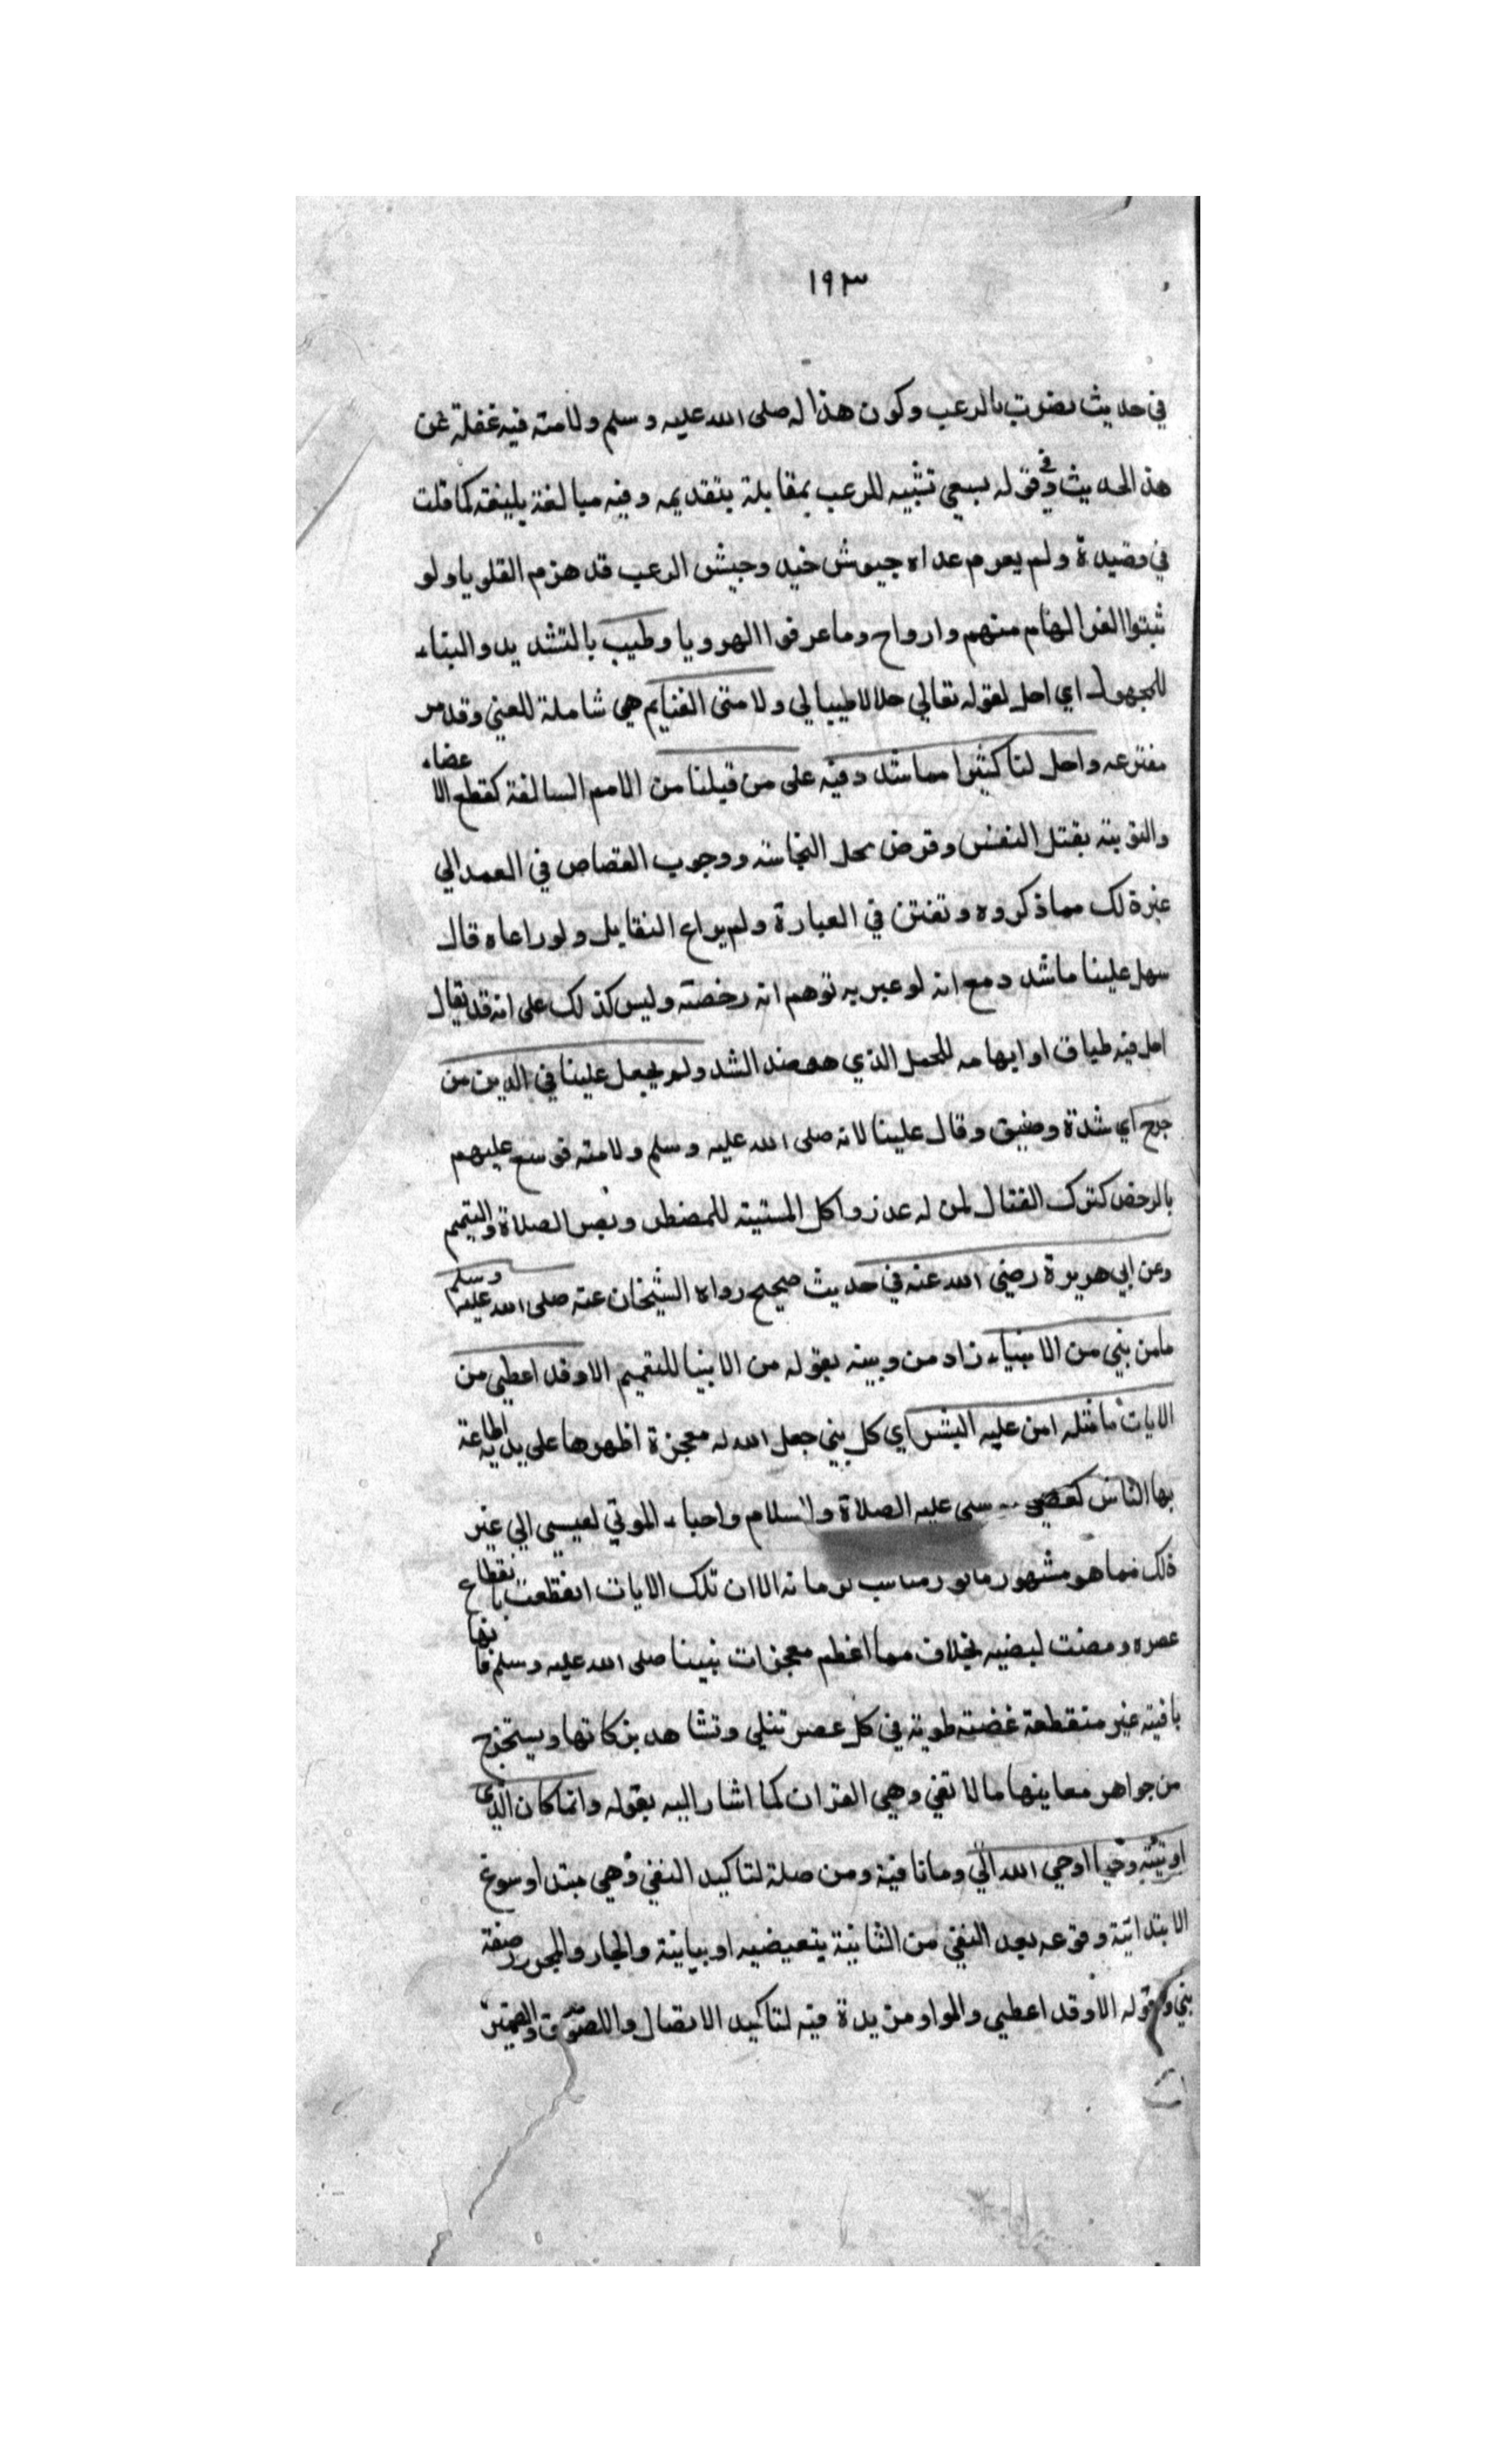 ١٩٣
في حديث نصرت بالرعب وكون هذا له صلى الله عليه وسلم ولامته فيه غفلة عن
هذا الحديث وفي قوله يسعى تشبيه للرعب بمقابلة بتقديمه وفيه مبالغة بليغة كما قلت
في قصيدة ولم يعرم عداه جيوش خيد وجيش الرعب قد هزم القلوبا ولو
ثبتوا الهام منهم وارواح وما عرفوا الهروبا وطيب بالتشديد والبناء
للمجهول اي احل لقوله تعالي حلالا طيبا لي ولامتى الغنايم هي شاملة للفيء وقد مر
واحل لنا كثيرا مما شدد فيه على من قبلنا من الامم السالفة كقطع الاعضاء
والتوبة بقتل النفس وقرض محل النجاسة ووجوب القصاص في العمد الي
غير ذلك مما ذكروه وتفنن في العبارة ولم يراع التقابل ولو راعاه قال
سهل علينا ما شدد مع انه لو عبر به توهم انه رخصة وليس كذلك على انه قد يقال
فيه طباق او ايهامه للمحل الذي هو ضد الشد ولم يجعل علينا في الدين من
حرج اي شدة وضيق وقال علينا لانه صلى الله عليه وسلم ولامته فوسع عليهم
بالرخص كترك القتال لمن له عذر واكل الميتة للمضطر وقصر الصلاة والتيمم
وعن ابي هريرة رضي الله عنه في حديث صحيح رواه الشيخان عنه صلى الله عليه وسلم
ما من نبي من الانبياء زاد من وبينه بقوله من الانبيا للتعميم الا وقد اعطي من
الايات ما مثله امن عليه البشر اي كل نبي جعل الله له معجزة اظهرها على يديه اطاعة
بها الناس سى عليه الصلاة والسلام واحياء الموتي لعيسى الي غير
ذلك مما هو مشهور الا ان تلك الايات انقطعت بانقطاع
عصره ومضت بخلاف مما اعظم معجزات نبينا صلى الله عليه وسلم فانها
باقية غير منقطعة غضة طرية في كل عصر تتلي وتشاهد بركاتها ويستخرج
من جواهر معانيها ما لا تفني وهي القران كما اشار اليه بقوله وانما كان الذي
اوتيته وحيا اوحي الله الي وما نافية ومن صلة لتاكيد النفي وهي مبتدا وسوغ
الابتدائية وقوعه بعد النفي من الثانية تبعيضيه او بيانية والجار والمجرور صفة
نبي وقوله الا وقد اعطي والواو مزيدة فيه لتاكيد الاتصال واللصوق والضمير